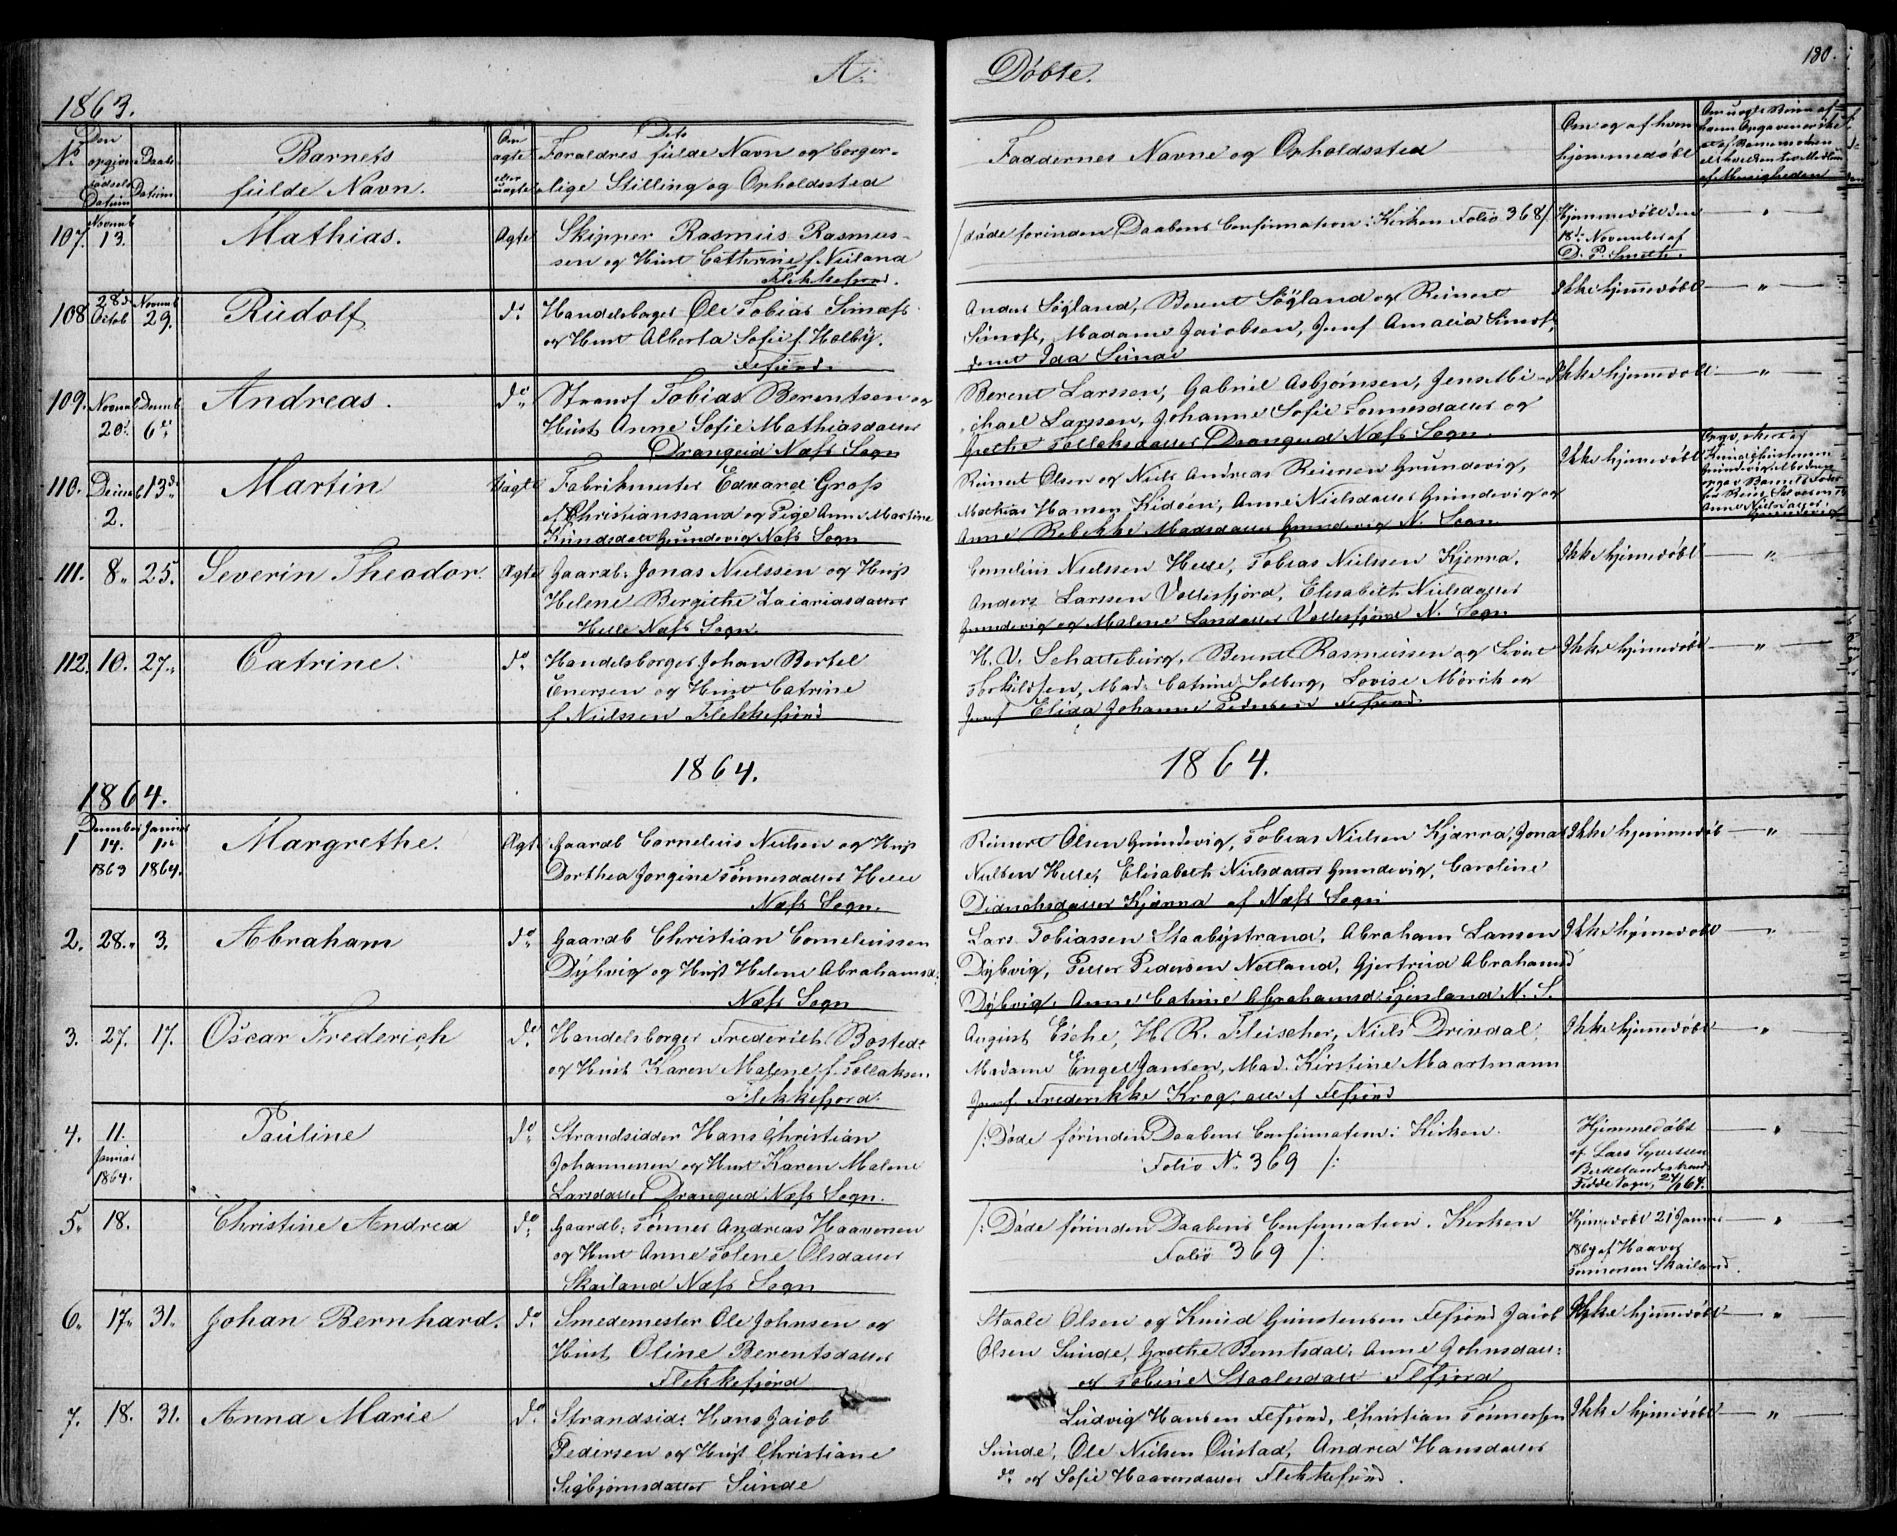 A: Døbte.
180.
1863.
No
Den opgivne fødsels Datum
Daabs Datum
Barnets
fulde Navn.
Om ægte eller uægte
Dets
Forældres fulde Navn og borger-
lige Stilling og Opholdssted
Faddernes Navne og Opholdssted
Om og af hvem
hjemmedøbt
107. Novemb 13. Mathias. Ægte
Skipper Rasmus Rasmus-
sen og Hust Cathrine f. Neiland
Flekkefjord.
/døde forinden Daabens Confirmation i Kirken Folio 368/
Hjemmedøbt den
18de November af
D. P. Smeth.
108 28de Octob Novemb 29. Rudolf do
Handelsborger Ole Tobias Sunæs
og Hust Alberta Sofie f. Holby.
Fefjord.
Anders Søyland, Berent Søyland og Reinert
Sunæs, Madame Jacobsen, Jomf Amalia Sunæs,
Ida Sunæs
Ikke hjemmedøbt
109. Novemb 20. Decemb 6te Andreas. do
Strands Tobias Berentsen og
Hust Anne Sofie Mathiasdatter
Drangeid Næss Sogn
Berent Larssen, Gabriel Asbjørnsen, Jens Mi-
chael Larssen, Johanne Sofie Tønnesdatter og
Grethe Tollaksdatter Drangeid Næss Sogn.
Ikke hjemmedøbt
110. Decemb 2. 13de Martin Uægte
Fabrikmester Edvard Gross
af Christianssand og Pige Anne Martine
Knudsdatter Grundevig Næss Sogn
Reinert Olsen og Niels Andreas Reiersen Grundevig,
Mathias Hansen Kideen, Anne Nielsdatter Grundevig og
Anne Rebekke Madsdatter Grundevig N. Sogn.
Ikke hjemmedøbt
111. 8. 25. Severin Theodor. Ægte
Gaardb. Jonas Nielssen og Hust
Helene Bergithe Zacariasdatter
Helle Næss Sogn.
Cornelius Nielssen Helle, Tobias Nielssen Kjerra,
Anders Larssen Vollesfjord, Elisabeth Nielsdatter
Grundevig og Malene Larsdatter Vollesfjord N. Sogn
Ikke hjemmedøbt
112. 10. 27. Catrine. do
Handelsborger Johan Bertel
Enersen og Hust Catrine
f. Nielssen Flekkefjord
H. V. Schatteburg, Berent Rasmussen og Sivert
Torkildsen, Mad. Catrine Solberg, Lovise Mørch og
Jomf Elisa Johanne Pedersen Fefjord.
Ikke hjemmedøbt
1864. 1864.
1864.
1 December 14. 1863 Januar 1ste 1864. Margrethe. Ægt
Gaardb Cornelius Nielsen og Hust
Dorthea Jorgine Tønnesdatter Helle
Næss Sogn.
Reinert Olsen Grundevig, Tobias Nielsen Kjærra, Jonas
Nielsen Helle, Elisabeth Nielsdatter Grundevig, Caroline
Didriksdatter Kjærra af Næss Sogn
Ikke hjemmedøb
2. 28. 3. Abraham do
Gaardb Christian Corneliussen
Dybvig og Hust Helene Abrahamsd:
Næss Sogn
Lars Tobiassen Staabystrand, Abraham Larssen
Dybvig, Petter Pedersen Netland, Gjertrud Abrahamsd
Dybvig, Anne Catrine Abrahamsd. N. S.
Ikke hjemmedøbt
3. 27. 17. Oscar Frederich do
Handelsborger Frederich Bosted:
og Hust Karen Malene f. Tollaksen
Flekkefjord.
August Esche, H R. Fleischer, Niels Drivdal,
Madame Engel Jansen, Mad. Kirstine Maartmann
Jomf. Frederikke Krog, alle af Fefjord
Ikke hjemmedøbt
4. 11. Januar 1864. Pauline do
Strandsidder Hans Christian
Johannessen og Hust Karen Malene
Larsdatter Drangeid Næss Sogn.
/: Døde forinden Daabens Confirmation i Kirken.
Folio No 369 /:
Hjemmedøbt
af Lars Syvertsen
Birkelandsstrand
Fedde Sogn, 64.
5. 18. Christine Andrea do
Gaardb: Tønnes Andreas Haaversen
og Hust Anne Tolene Olsdatter
Skailand Næss Sogn
/: Døde forinden Daabens Confirmation i Kirken
Folio 369 /:
Hjemmedøbt 21 Januar
1864 af Haaver
Tønnessen Skailand.
6. 17. 31. Johan Bernhard. do
Smedemester Ole Johnsen og
Hust Oline Berentsdatter
Flekkefjord
Staale Olsen og Knud Gunstensen Fefjord Jacob
Olsen Sunde, Grethe Berntsdat, Anne Johnsdatt:
og Tobine Staalesdatt Fefjord
Ikke hjemmedøbt
7. 18. 31. Anna Marie do
Strandsid: Hans Jacob
Pedersen og Hust Christiane
Sigbjørnsdatter Sunde
Ludvig Hansen Fefjord, Christian Tønnessen
Sunde, Ole Nielsen Oustad, Andrea Hansdatter
do og Sofie Haaversdatter Flekkefjord.
Ikke hjemmedøbt